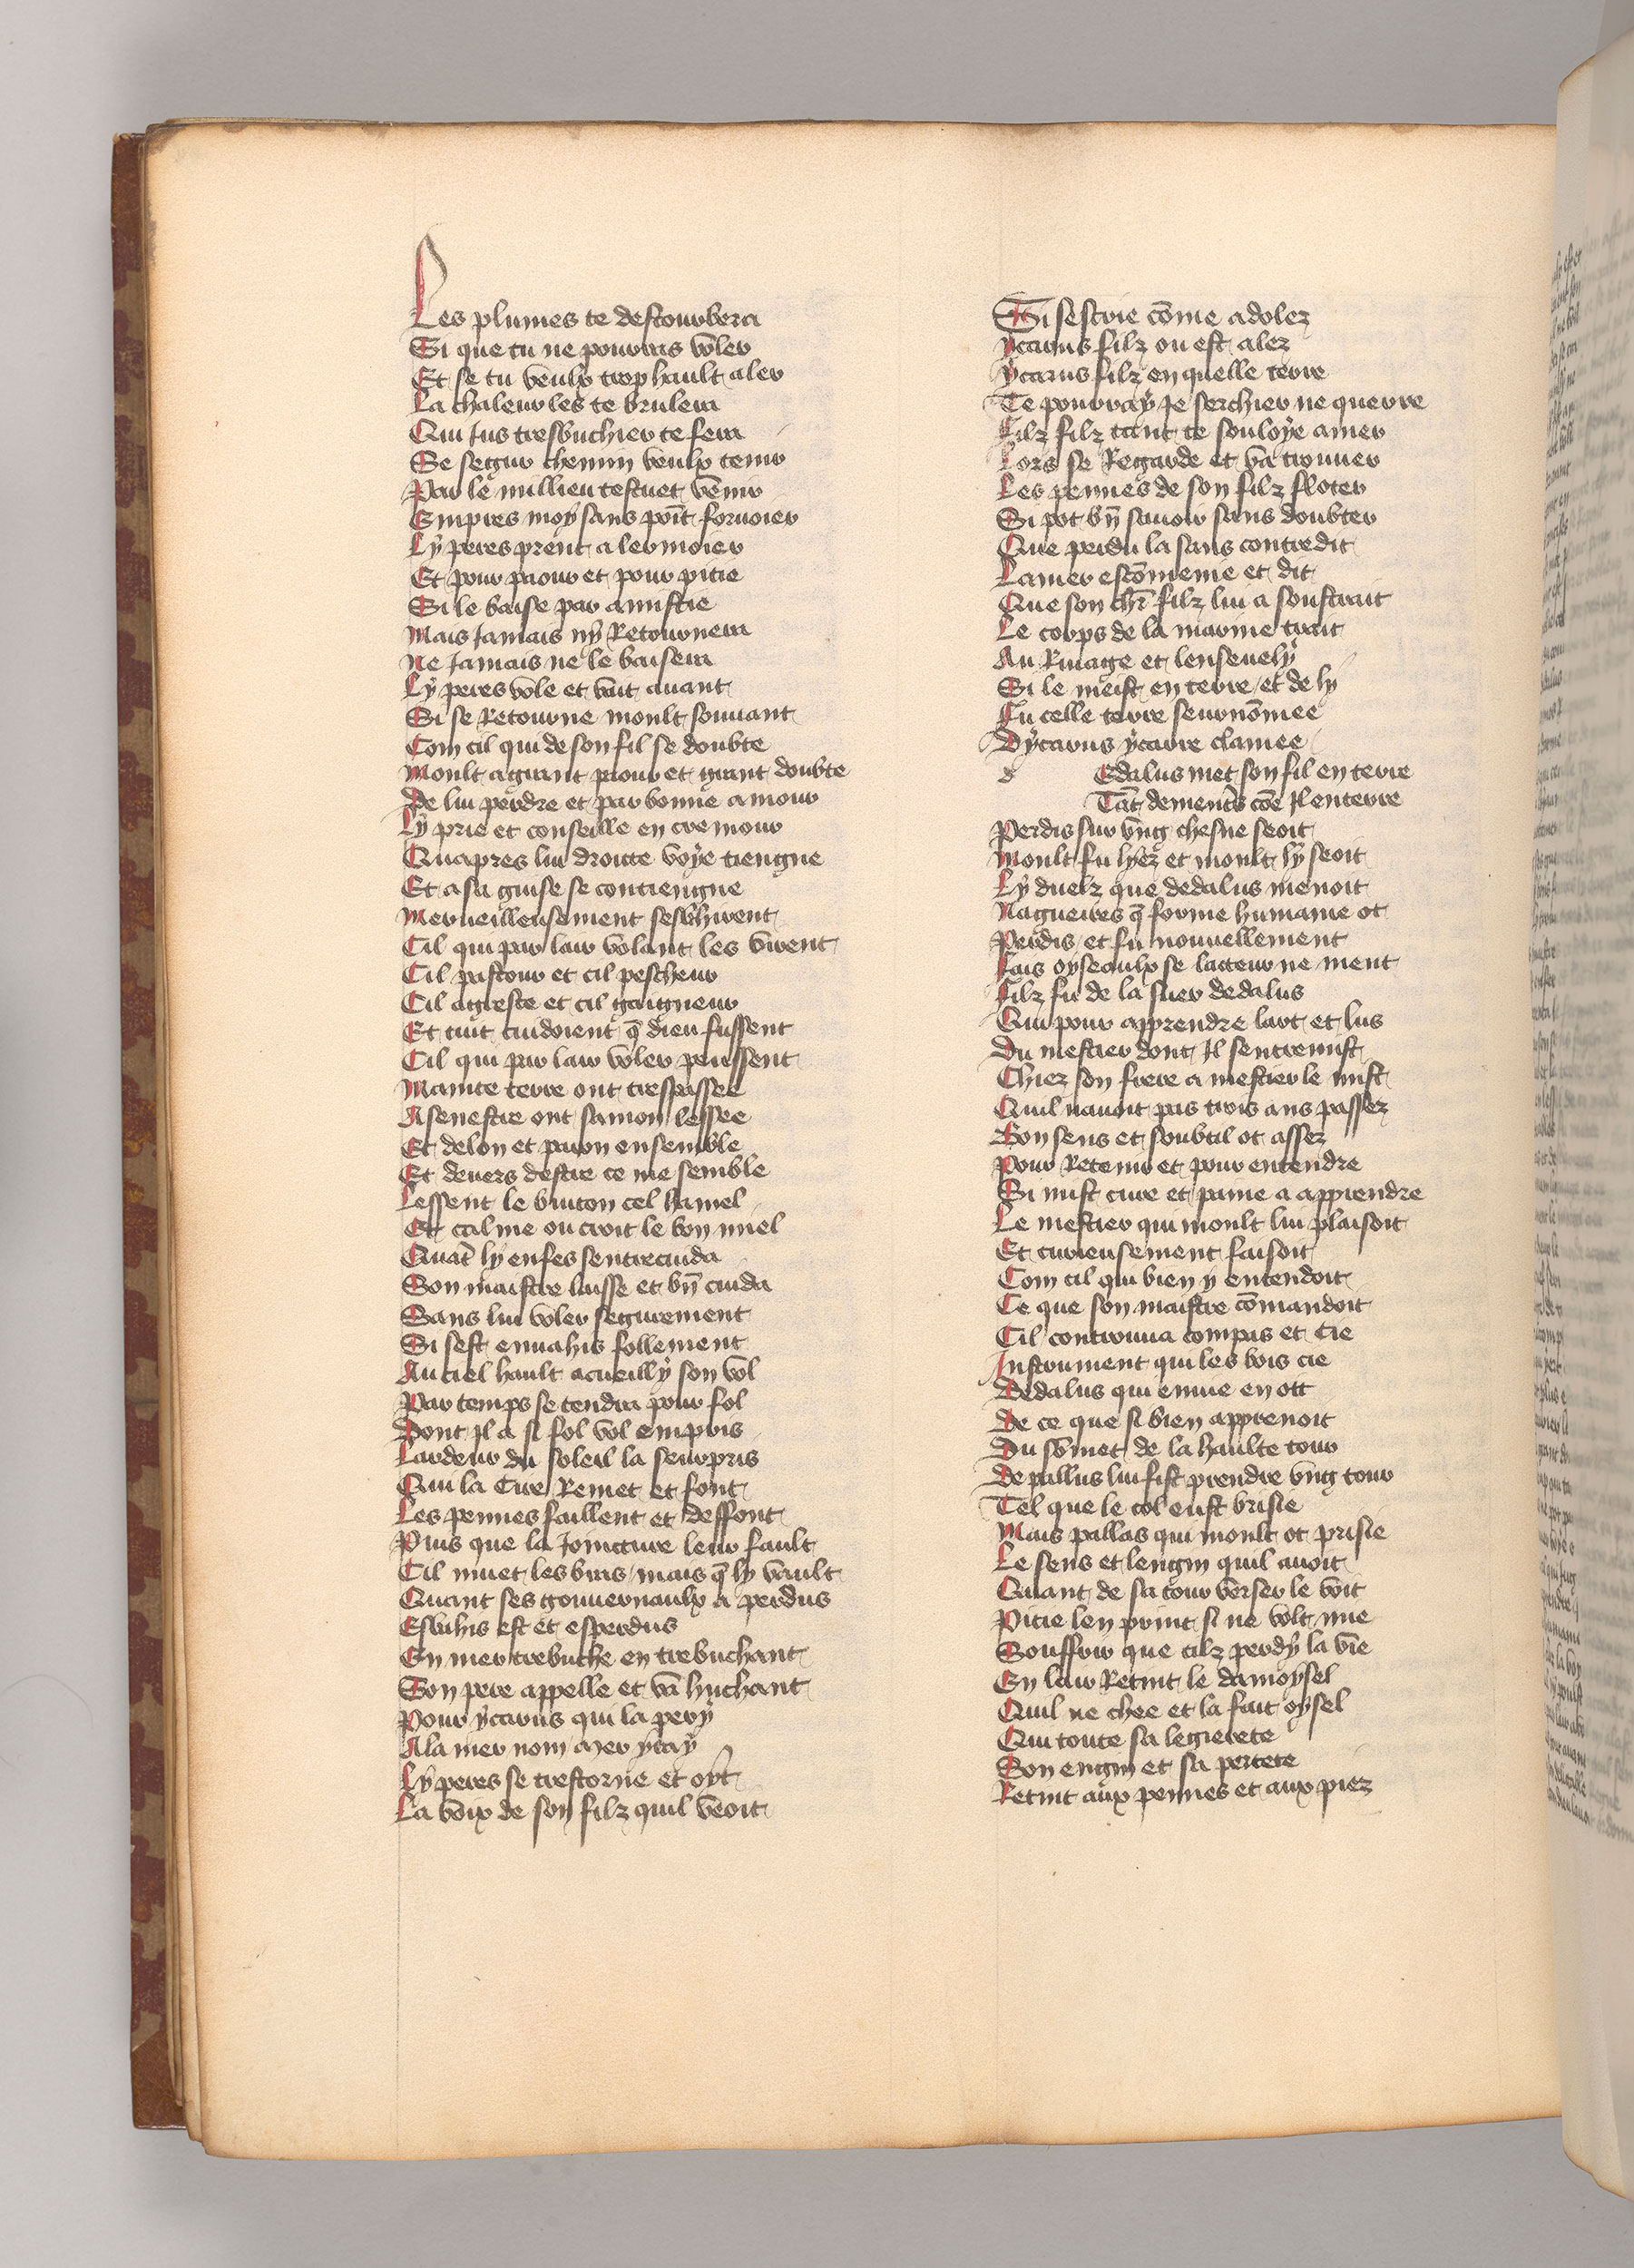 Les plumes te destourbera
Si que tu ne pourras voler
Et se tu veulx trop hault aler
La chaleur les te brulera
Qui Jus tresbuchier te fera
Se segur chemin veulx tenir
Par le millieu testuet venir
Empres moy sans point forvoier
Ly peres prent a lermoier
Et pour paour et pour pitie
Si le baise par amistie
Mais Jamais ny Retournera
Ne Jamais ne le baisera
Ly peres vole et vait avant
Si se Retourne moult souvant
Com cil qui de son fil se doubte
Moult a grant paour et grant doubte
De lui perdre et par bonne amour
Ly prie et conseille en cremour
Quapres lui droitte voye tiengne
Et a sa guise se contiengne
Merveilleusement sesbhirent
Cil qui par lair volant les virent
Cil pastour et cil pescheur
Cil agreste et cil gaigneur
Et tuit cuidoient q̃ dieu fussent
Cil qui par lair voler peussent
Mainte terre ont trespassee
A senestre ont samon lessee
Et delon et paron ensemble
Et devers destre ce me semble
Lessent le binton cel hamel
Et calme ou croit le bon miel
Quat̃ ly enfes sentrecuida
Son maistre laisse et bñ cuida
Sans lui voler segurement
Si sest envahis follement
Au ciel hault acueilly son vol
Par temps se tendra pour fol
Dont Il a si fol vol empris
Lardeur du soleil la seurpris
Qui la Cire Remet et font
Les pennes faillent et deffont
Puis que la Jointture leur fault
Cil muet les bras mais q̃ ly vault
Quant ses gouvernaulx a perdus
Esbahis est et esperdus
En mer trebuche en trebuchant
Son pere appelle et va huchant
Pour ycarus qui la pery
A la mer nom mer ycary
Ly peres se trestorne et oyt
La voix de son filz quil veoit
Si sescrie cõme adolez
ycarus filz ou est alez
ycarus filz en quelle terre
Te pourray Je serchier ne querre
Filz filz tant te souloye amer
Lors se Regarde et va trouver
Les pennes de son filz floter
Si pot bñ savoir sans doubter
Que perdu la sans contredit
La mer escõmenie et dit
Que son chr̃ filz lui a soustrait
Le corps de la marine trait
Au Rivage et lensevely
Si le meist en terre et de ly
Fu celle terre seurnõmee
Dycarus ycarre clamee
d Edalus met son fil en terre
Tãt dementrs cõe Il enterre
Perdis sur ung chesne seoit
Moult fu lyez et moult ly seoit
Ly duelz que dedalus menoit
Nagueires q̃ forme humaine ot
Perdis et fu nouvellement
Fais oyseaulx se lacteur ne ment
Filz fu de la suer dedalus
Qui pour apprendre lart et lus
Du mestier dont Il sentremist
Chiez son frere a mestier le mist
Quil navoit pas trois ans passez
Bon sens et soubtil ot assez
Pour Retenir et pour entendre
Si mist cure et paine a apprendre
Le mestier qui moult lui plaisoit
Et curieusement faisoit
Com cil qui bien y entendoit
Ce que son maistre cõmandoit
Cil controuva compas et cie
Instrument qui les bois cie
Dedalus qui envie en ott
De ce que si bien apprenoit
Du sõmet de la haulte tour
De pallas lui fist prendre ung tour
Tel que le col eust brisie
Mais pallas qui moult ot prisie
Le sens et lengin quil avoit
Quant de sa tour verser le voit
Pitie len print si ne volt mie
Souffrir que cilz perdy la vie
En lair Retint le damoysel
Quil ne chee et la fait oysel
Qui toute sa legierete
Son engin et sa pertete
Retint aux pennes et aux piez